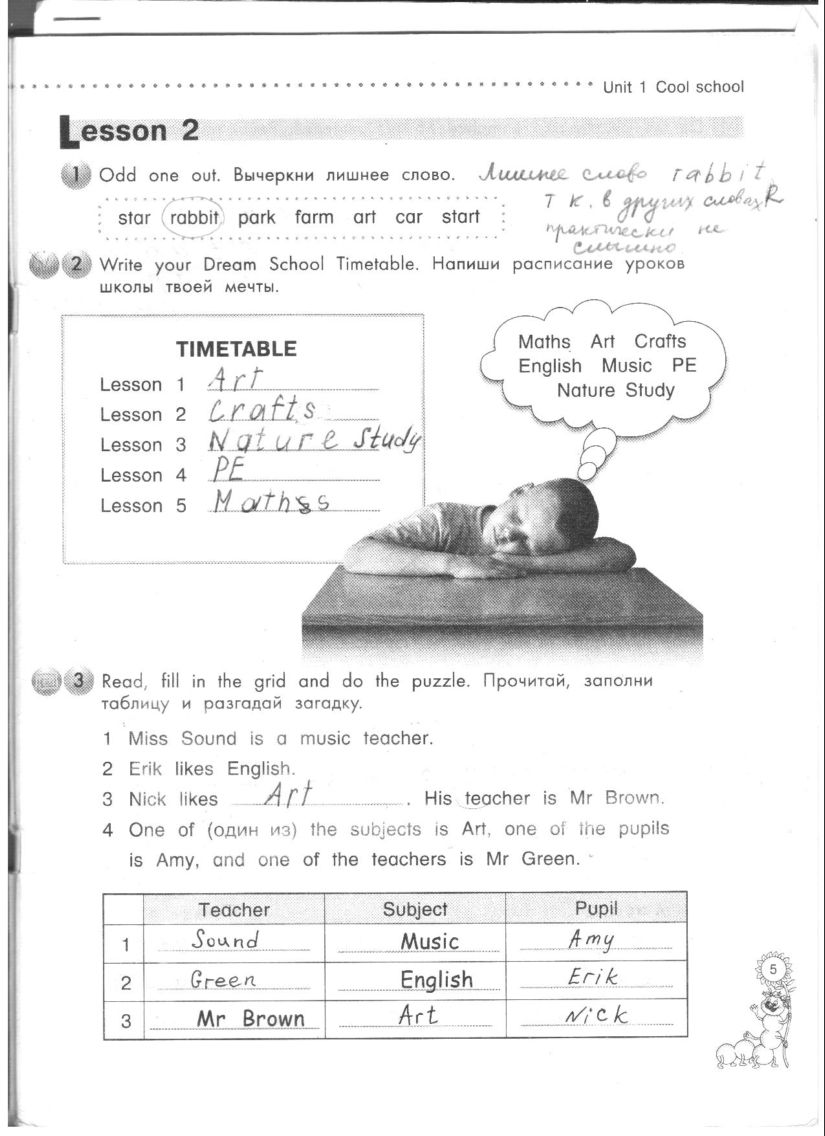 Unit 1 Cool school
Lesson 2
1 Odd one out. Вычеркни лишнее слово. Лишнее слово rabbit,
т к. в других словах R
практически не
слышно
star rabbit park farm art car start
2 Write your Dream School Timetable. Напиши расписание уроков
школы твоей мечты.
TIMETABLE
Lesson 1 Art
Lesson 2 Crafts
Lesson 3 Nature Study
Lesson 4 PE
Lesson 5 Maths
Maths Art Crafts
English Music PE
Nature Study
3 Read, fill in the grid and do the puzzle. Прочитай, заполни
таблицу и разгадай загадку.
1 Miss Sound is a music teacher.
2 Erik likes English.
3 Nick likes Art. His teacher is Mr Brown.
4 One of (один из) the subjects is Art, one of the pupils
is Amy, and one of the teachers is Mr Green.
Teacher Subject Pupil
1 Sound Music Amy
2 Green English Erik
3 Mr Brown Art Nick
5